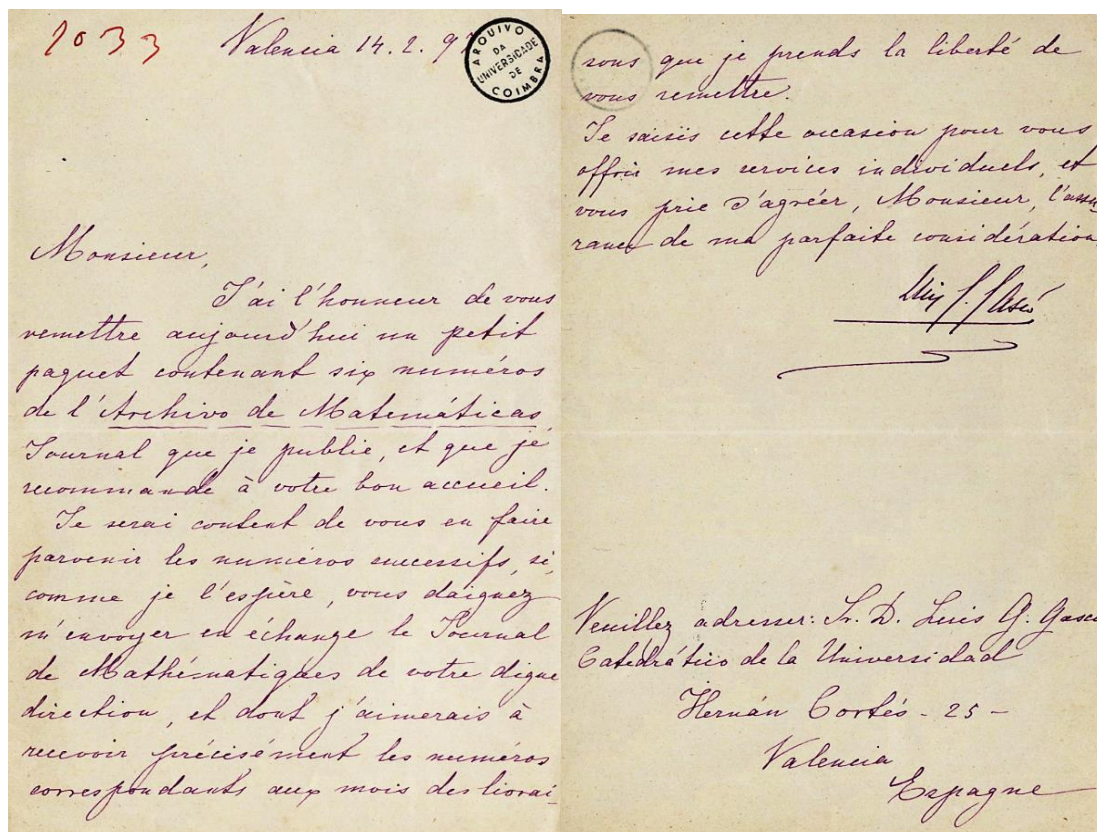 1033
Valencia 14. 2. 97
ARQUIVO DA UNIVERSIDADE DE COIMBRA
Monsieur,
J'ai l'honneur de vous
remettre aujourd'hui un petit
paquet contenant six numéros
de l'Archivo de Matemáticas
Journal que je publie, et que je
recommande à votre bon accueil.
Je serai content de vous en faire
parvenir les numéros successifs, si,
comme je l'espère, vous daignez
m'envoyer en échange le Journal
de Mathématiques de votre digne
direction, et dont j'aimerais à
recevoir précisément les numéros
correspondants aux mois des livrai-
sons que je prends la liberté de
vous remettre.
Je saisis cette occasion pour vous
offrir mes services individuels, et
vous prie d'agréer, Monsieur, l'assu-
rance de ma parfaite considération
Luis G. Gascó
Veuillez adresser: Sr. D. Luis G. Gascó
Catedrático de la Universidad
Hernán Cortés - 25 -
Valencia
Espagne